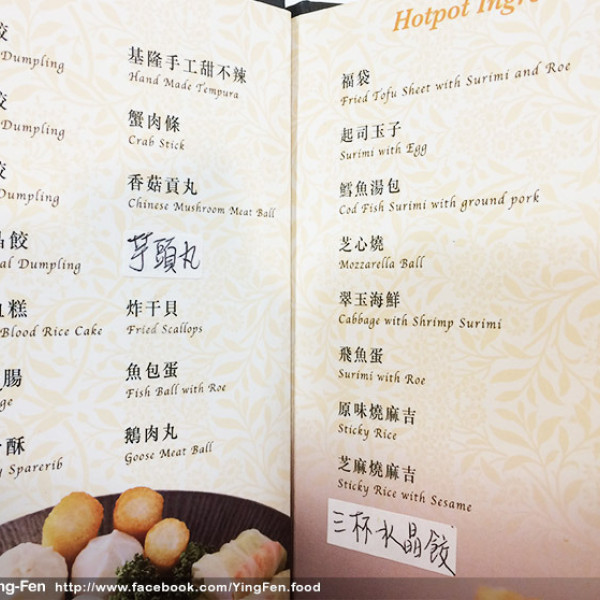 餃
Dumpling
餃
Dumpling
餃
Dumpling
晶餃
al Dumpling
血糕
Blood Rice Cake
腸
ge
酥
Sparerib
基隆手工甜不辣
Hand Made Tempura
蟹肉條
Crab Stick
香菇貢丸
Chinese Mushroom Meat Ball
芋頭丸
炸干貝
Fried Scallops
魚包蛋
Fish Ball with Roe
鵝肉丸
Goose Meat Ball
Hotpot Ingre
福袋
Fried Tofu Sheet with Surimi and Roe
起司玉子
Surimi with Egg
鱈魚湯包
Cod Fish Surimi with ground pork
芝心燒
Mozzarella Ball
翠玉海鮮
Cabbage with Shrimp Surimi
飛魚蛋
Surimi with Roe
原味燒麻吉
Sticky Rice
芝麻燒麻吉
Sticky Rice with Sesame
三杯水晶餃
ng-Fen http://www.facebook.com/YingFen.food